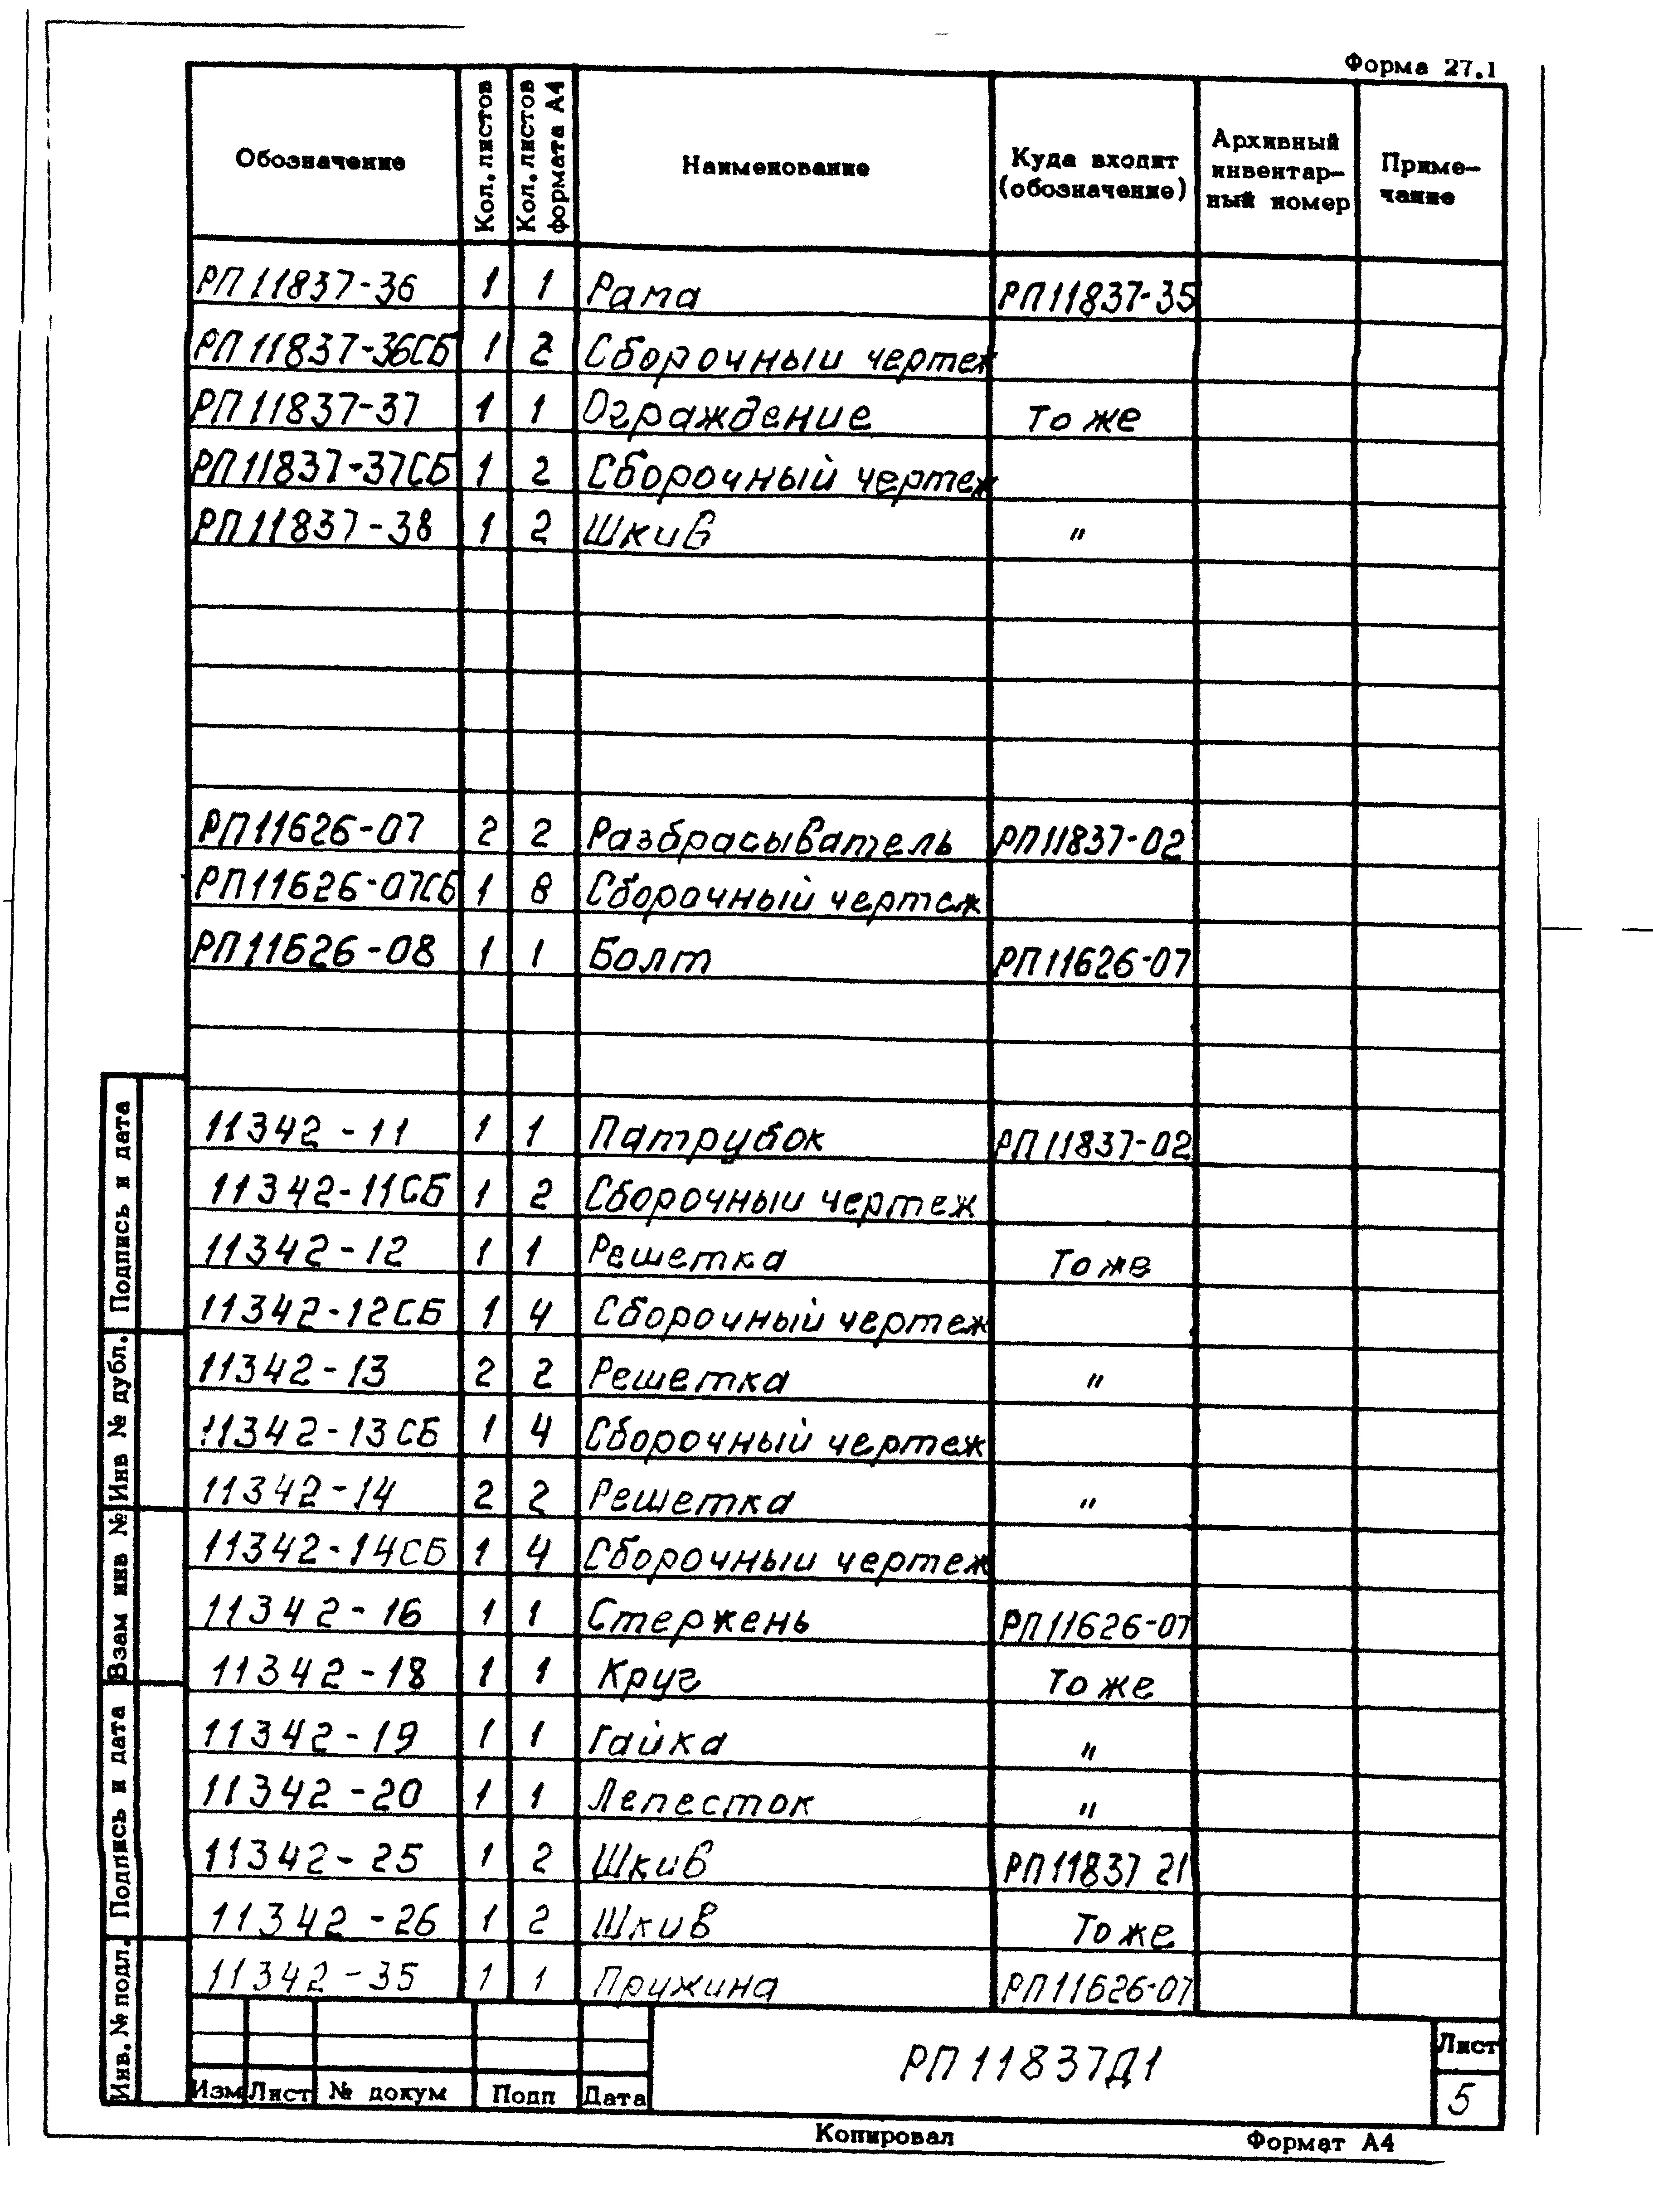 Форма 27.1
Обозначение Кол. листов Кол. листов формата А4 Наименование Куда входит (обозначение) Архивный инвентар- ный номер Приме- чание
РП11837-36 1 1 Рама РП11837-35
РП11837-36СБ 1 2 Сборочный чертеж
РП11837-37 1 1 Ограждение То же
РП11837-37СБ 1 2 Сборочный чертеж
РП11837-38 1 2 Шкив "
РП11626-07 2 2 Разбрасыватель РП11837-02
РП11626-07СБ 1 8 Сборочный чертеж
РП11626-08 1 1 Болт РП11626-07
11342-11 1 1 Патрубок РП11837-02
11342-11СБ 1 2 Сборочный чертеж
11342-12 1 1 Решетка То же
11342-12СБ 1 4 Сборочный чертеж
11342-13 2 2 Решетка "
11342-13СБ 1 4 Сборочный чертеж
11342-14 2 2 Решетка "
11342-14СБ 1 4 Сборочный чертеж
11342-16 1 1 Стержень РП11626-07
11342-18 1 1 Круг То же
11342-19 1 1 Гайка "
11342-20 1 1 Лепесток "
11342-25 1 2 Шкив РП11837 21
11342-26 1 2 Шкив То же
11342-35 1 1 Пружина РП11626-07
Изм Лист № докум Подп Дата
РП11837Д1
Лист
5
Копировал Формат А4
Инв. № подл. Подпись и дата Взам инв № Инв № дубл. Подпись и дата